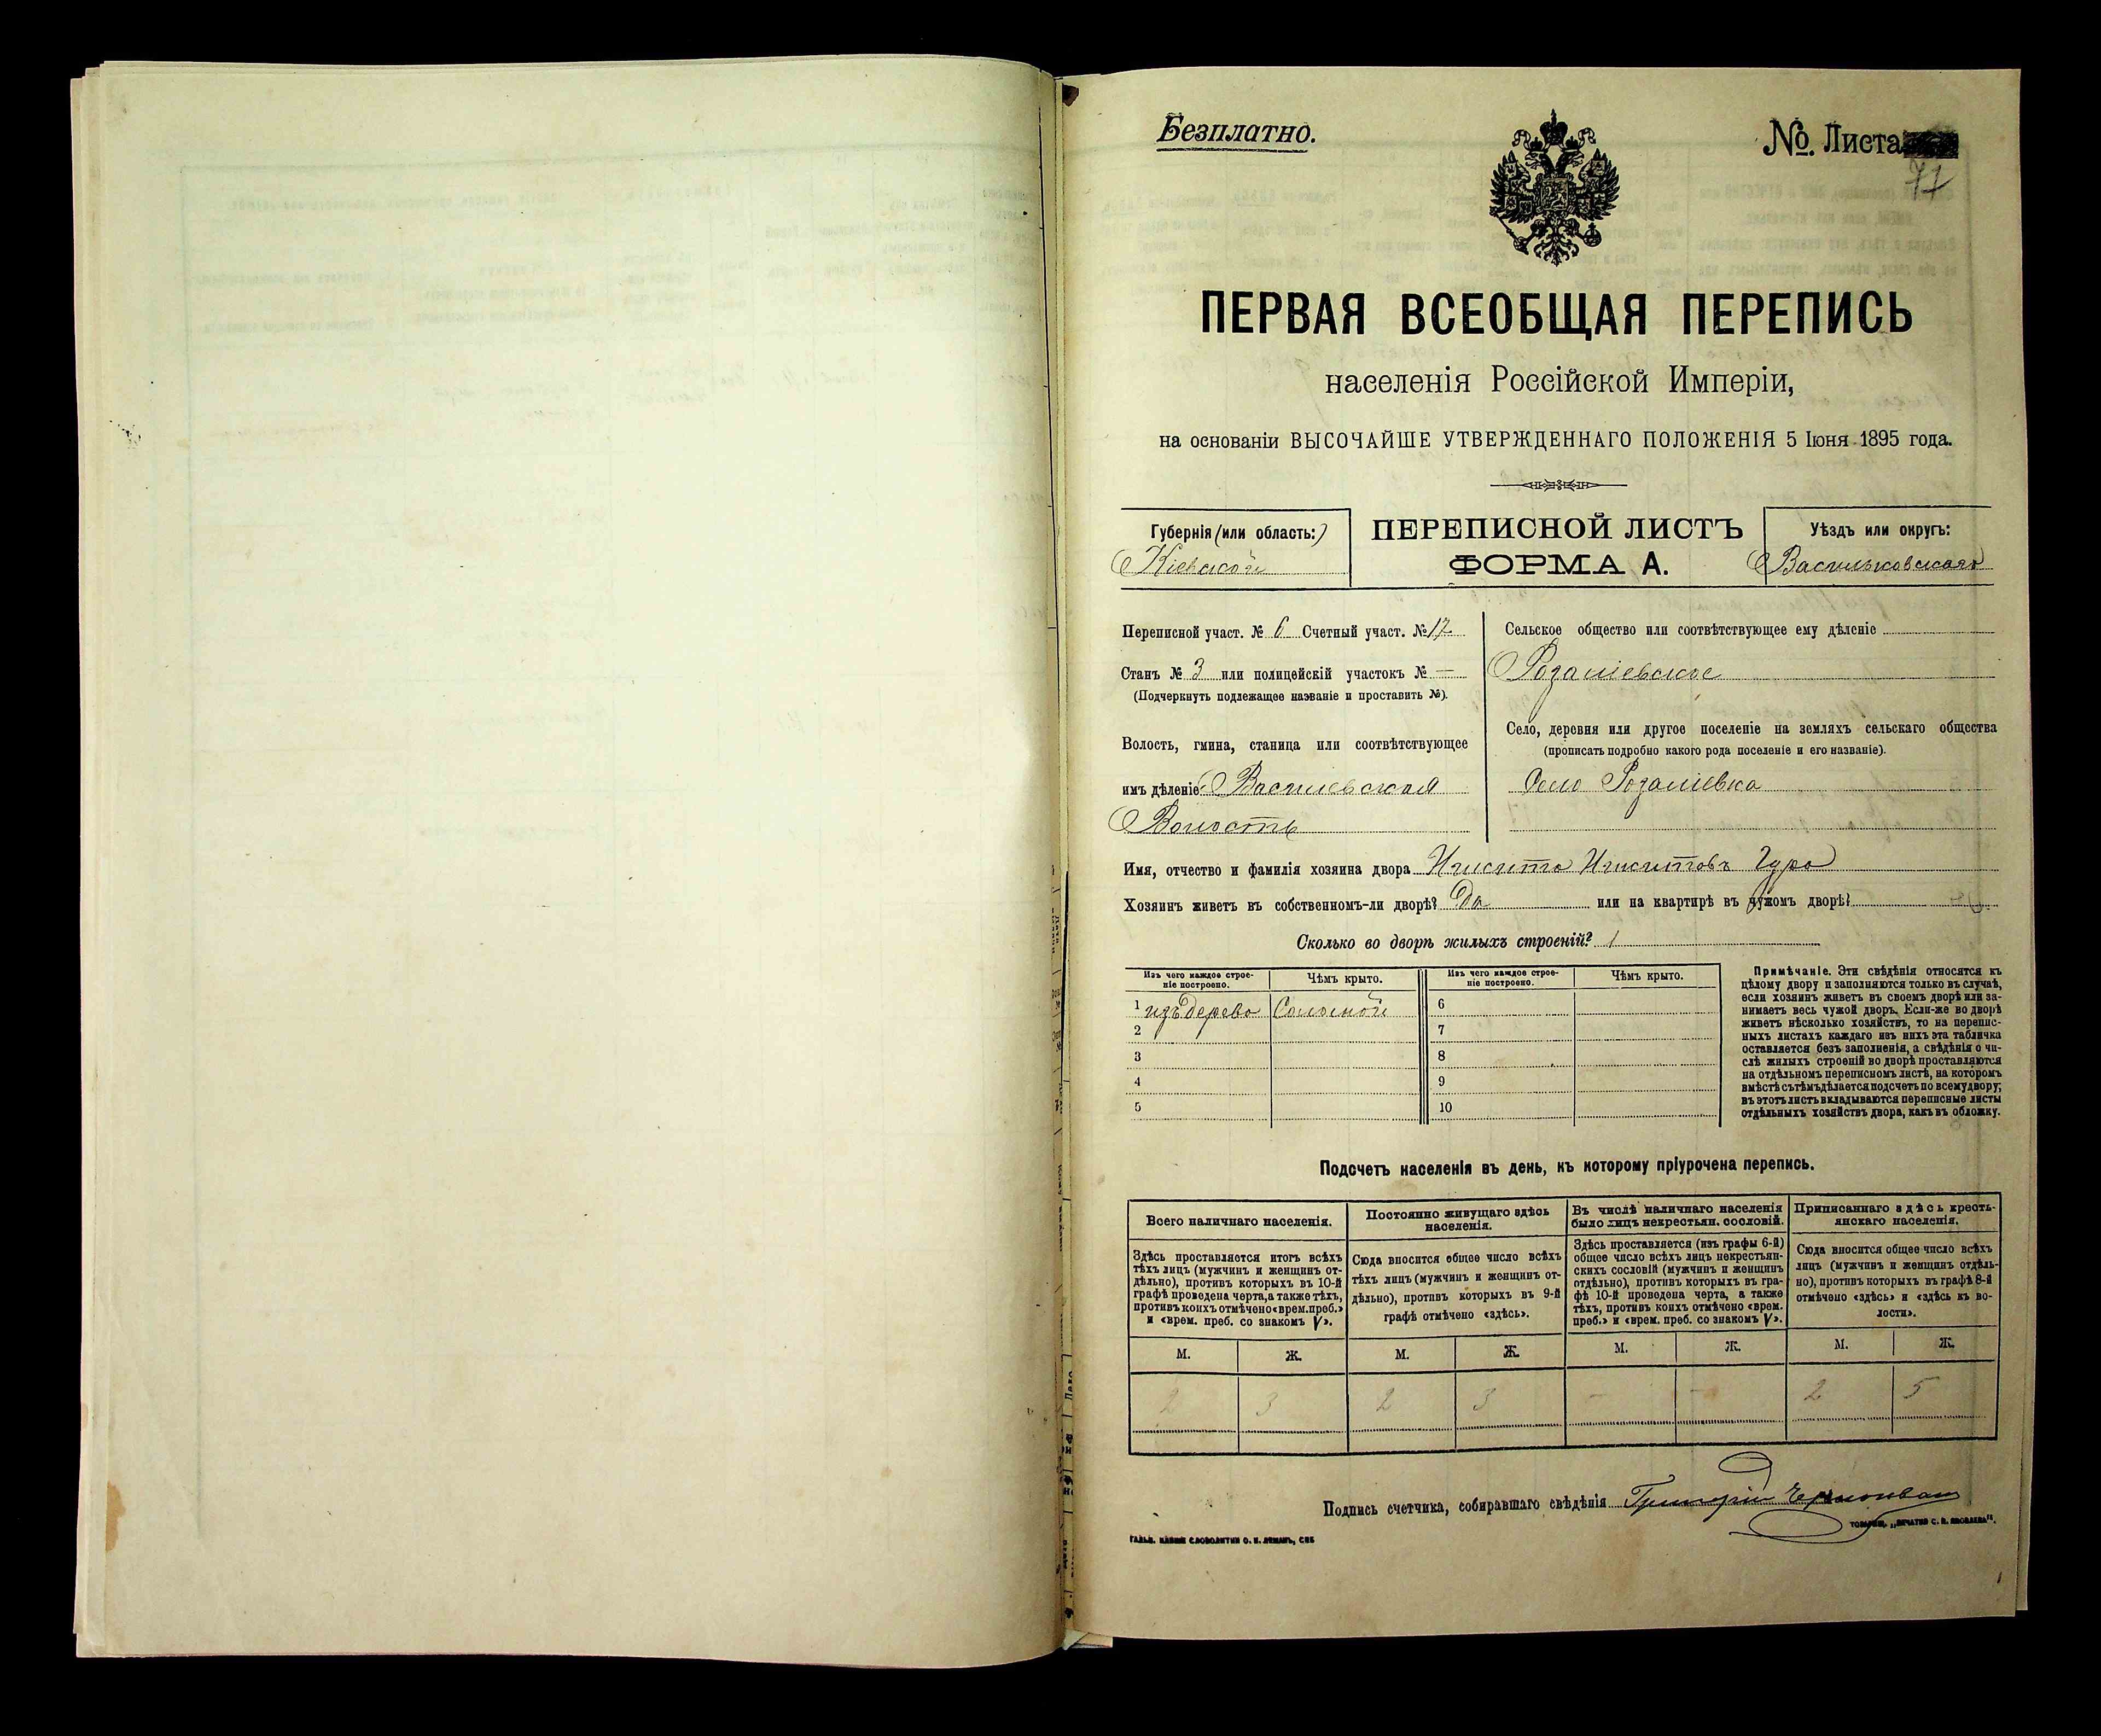 Безплатно.
№ Листа
77
ПЕРВАЯ ВСЕОБЩАЯ ПЕРЕПИСЬ
населенія Россійской Имперіи,
на основаніи ВЫСОЧАЙШЕ УТВЕРЖДЕННАГО ПОЛОЖЕНІЯ 5 Іюня 1895 года.
Губернія (или область:)
Кіевской
ПЕРЕПИСНОЙ ЛИСТЪ
ФОРМА А.
Уѣздъ или округъ:
Васильковскаго
Переписной участ. № 6 Счетный участ. № 12
Станъ № 3 или полицейскій участокъ № —
(Подчеркнуть подлежащее названіе и проставить №).
Волость, гмина, станица или соотвѣтствующее
имъ дѣленіе Василевская
Волость
Сельское общество или соотвѣтствующее ему дѣленіе
Розаліевское
Село, деревня или другое поселеніе на земляхъ сельскаго общества
(прописать подробно какого рода поселеніе и его названіе).
Село Розаліевка
Имя, отчество и фамилія хозяина двора Никита Никитовъ Гура
Хозяинъ живетъ въ собственномъ-ли дворѣ? Да или на квартирѣ въ чужомъ дворѣ?
Сколько во дворѣ жилыхъ строеній? 1
Изъ чего каждое строе-
ніе построено.
Чѣмъ крыто.
Изъ чего каждое строе-
ніе построено.
Чѣмъ крыто.
1 изъ дерева Соломой 6
2 7
3 8
4 9
5 10
Примѣчаніе. Эти свѣдѣнія относятся къ
цѣлому двору и заполняются только въ случаѣ,
если хозяинъ живетъ въ своемъ дворѣ или за-
нимаетъ весь чужой дворъ. Если-же во дворѣ
живетъ нѣсколько хозяйствъ, то на перепис-
ныхъ листахъ каждаго изъ нихъ эта табличка
оставляется безъ заполненія, а свѣдѣнія о чи-
слѣ жилыхъ строеній во дворѣ проставляются
на отдѣльномъ переписномъ листѣ, на которомъ
вмѣстѣ съ тѣмъ дѣлается подсчетъ по всему двору;
въ этотъ листъ вкладываются переписные листы
отдѣльныхъ хозяйствъ двора, какъ въ обложку.
Подсчетъ населенія въ день, къ которому пріурочена перепись.
Всего наличнаго населенія.
Здѣсь проставляется итогъ всѣхъ
тѣхъ лицъ (мужчинъ и женщинъ от-
дѣльно), противъ которыхъ въ 10-й
графѣ проведена черта, а также тѣхъ,
противъ коихъ отмѣчено «врем. преб.»
и «врем. преб. со знакомъ V».
Постоянно живущаго здѣсь
населенія.
Сюда вносится общее число всѣхъ
тѣхъ лицъ (мужчинъ и женщинъ от-
дѣльно), противъ которыхъ въ 9-й
графѣ отмѣчено «здѣсь».
Въ числѣ наличнаго населенія
было лицъ некрестьян. сословій.
Здѣсь проставляется (изъ графы 6-й)
общее число всѣхъ лицъ некрестьян-
скихъ сословій (мужчинъ и женщинъ
отдѣльно), противъ которыхъ въ гра-
фѣ 10-й проведена черта, а также
тѣхъ, противъ коихъ отмѣчено «врем.
преб.» и «врем. преб. со знакомъ V».
Приписаннаго здѣсь кресть-
янскаго населенія.
Сюда вносится общее число всѣхъ
лицъ (мужчинъ и женщинъ отдѣль-
но), противъ которыхъ въ графѣ 8-й
отмѣчено «здѣсь» и «здѣсь къ во-
лости».
М. Ж. М. Ж. М. Ж. М. Ж.
2 3 2 3 — — 2 5
Подпись счетчика, собиравшаго свѣдѣнія Григорій
ТОВАРИЩ. „ПЕЧАТНЯ С. П. ЯКОВЛЕВА".
ГАЛЬВ. КЛИШЕ СЛОВОЛИТНИ О. И. ЛЕМАНЪ, СПБ